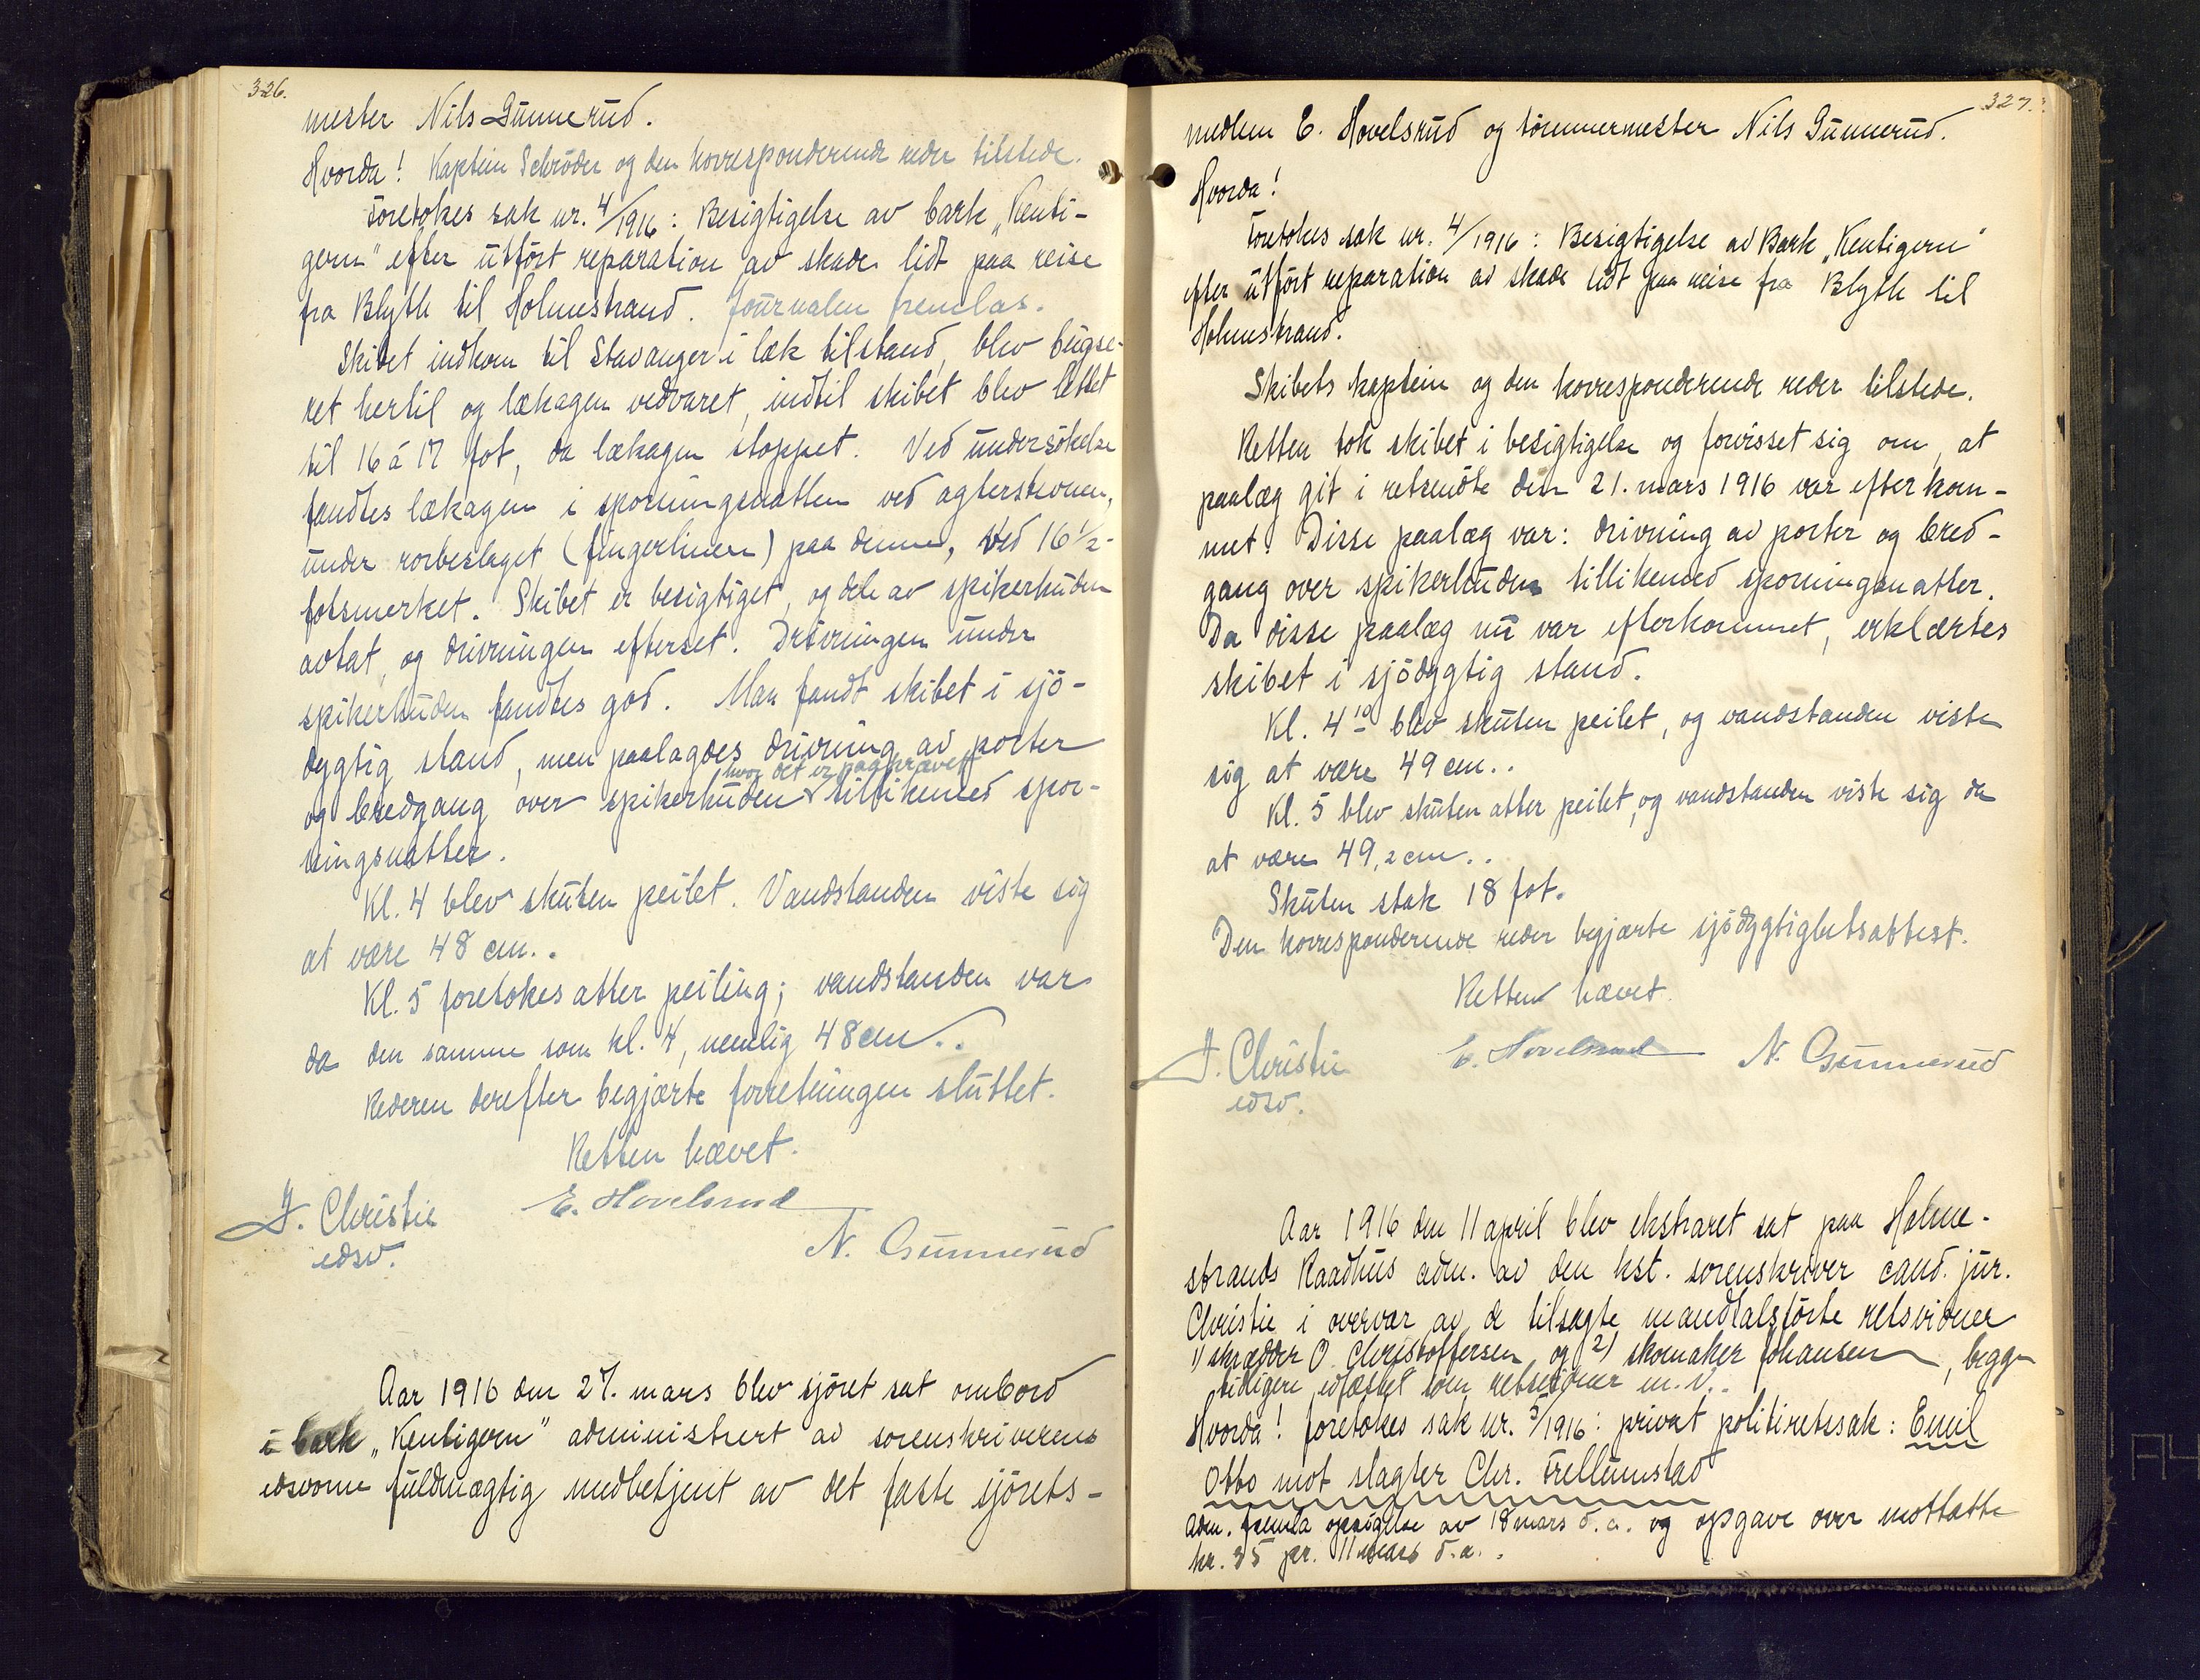 326.
mester Nils Gunnerud.
Hvorda! Kaptein Schröder og den korresponderende reder tilstede.
Foretokes sak nr. 4/1916: Besigtigelse av bark „Kenti-
gern" efter utført reparation av skade lidt paa reise
fra Blyth til Holmestrand. Journalen fremlas.
Skibet indkom til Stavanger i læk tilstand, blev bugse-
ret hertil og lækagen vedvaret, indtil skibet blev lettet
til 16 á 17 fot, da lækagen stoppet. Ved undersökelse
fandtes lækagen i sporningsnatten ved agterstevnen,
under rorbeslaget (fingerlinen) paa denne, ved 16½-
fotsmerket. Skibet er besigtiget, og dele av spikerhuden
avtat, og drivningen efterset. Drivningen under
spikerhuden fandtes god. Man fandt skibet i sjö-
dygtig stand, men paalagdes drivning av porter
hvor det er paaprøvet
og bredgang over spikerhuden tillikemed spor-
ningsnatter.
Kl. 4 blev skuten peilet. Vandstanden viste sig
at være 48 cm..
Kl. 5 foretokes atter peiling; vandstanden var
da den samme som kl. 4, nemlig 48 cm..
Rederen derefter begjærte forretningen sluttet.
Retten hævet.
J. Christie E. Hovelsrud
edsv. N. Gunnerud
Aar 1916 den 27. mars blev sjöret sat ombord
i bark „Kentigern" administrert av sorenskriverens
edsvorne fuldmægtig medbetjent av det faste sjörets-
327.
medlem E. Hovelsrud og tömmermester Nils Gunnerud.
Hvorda!
Foretokes sak nr. 4/1916: Besigtigelse av Bark „Kentigern"
efter utført reparation av skade lidt paa reise fra Blyth til
Holmestrand.
Skibets kaptein og den korresponderende reder tilstede.
Retten tok skibet i besigtigelse og forvisset sig om, at
paalæg git i retsmöte den 21. mars 1916 var efterkom-
met. Disse paalæg var: drivning av porter og bred-
gang over spikerhuden tillikemed sporningsnatter.
Da disse paalæg nu var efterkommet, erklærtes
skibet i sjödygtig stand.
Kl. 4 10 blev skuten peilet, og vandstanden viste
sig at være 49 cm..
Kl. 5 blev skuten atter peilet, og vandstanden viste sig da
at være 49,2 cm..
Skuten stak 18 fot.
Den korresponderende reder begjærte sjödygtighetsattest.
Retten hævet.
J. Christie E. Hovelsrud N. Gunnerud
edsv.
Aar 1916 den 11 april blev ekstraret sat paa Holme-
strands Raadhus adm. av den kst. sorenskriver cand. jur.
Christie i overvær av de tilsagte mandtalsførte retsvidner
1) skrædder O. Christoffersen og 2) skomaker Johansen, begge
tidligere edfæstet som retsvidner m.v..
Hvorda! foretokes sak nr. 5/1916: privat politiretssak: Emil
Otto mot slagter Chr. Trellumstad
Adm. fremla opsigelse av 18 mars d.a. og opgave over mottatte
kr. 35 pr. 11 mars d.a..